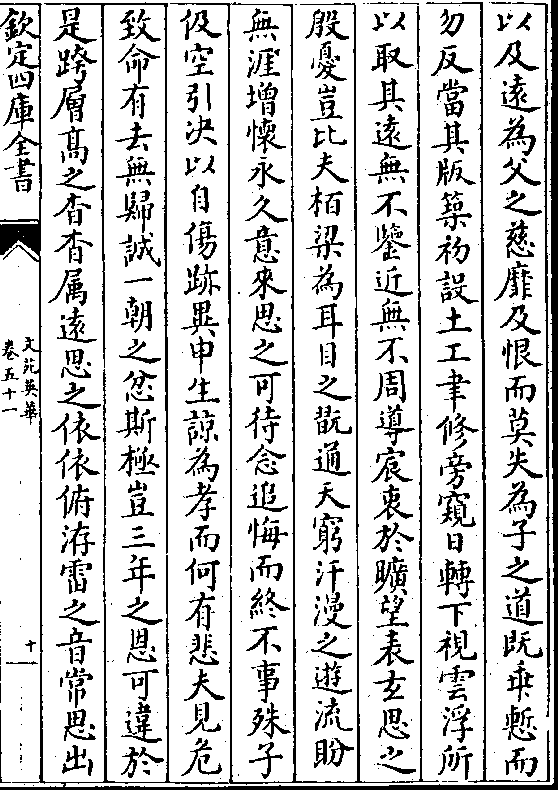 以及遠為父之慈靡及恨而莫失為子之道既乗慙而
勿反當其版築初設土工聿修旁窺日轉下視雲浮所
以取其遠無不鑒近無不周導宸衷於曠望表玄思之
殷憂豈比夫栢梁為耳目之翫通天窮汗漫之遊流盼
無涯增懷永久意來思之可待念追悔而終不事殊子
伋空引决以自傷跡異申生諒為孝而何有悲夫見危
致命有去無歸誠一朝之忿斯極豈三年之恩可違於
是跨層髙之杳杳属遠思之依依俯洊雷之音常思出
欽定四庫全書
文苑英華
卷五十一
十